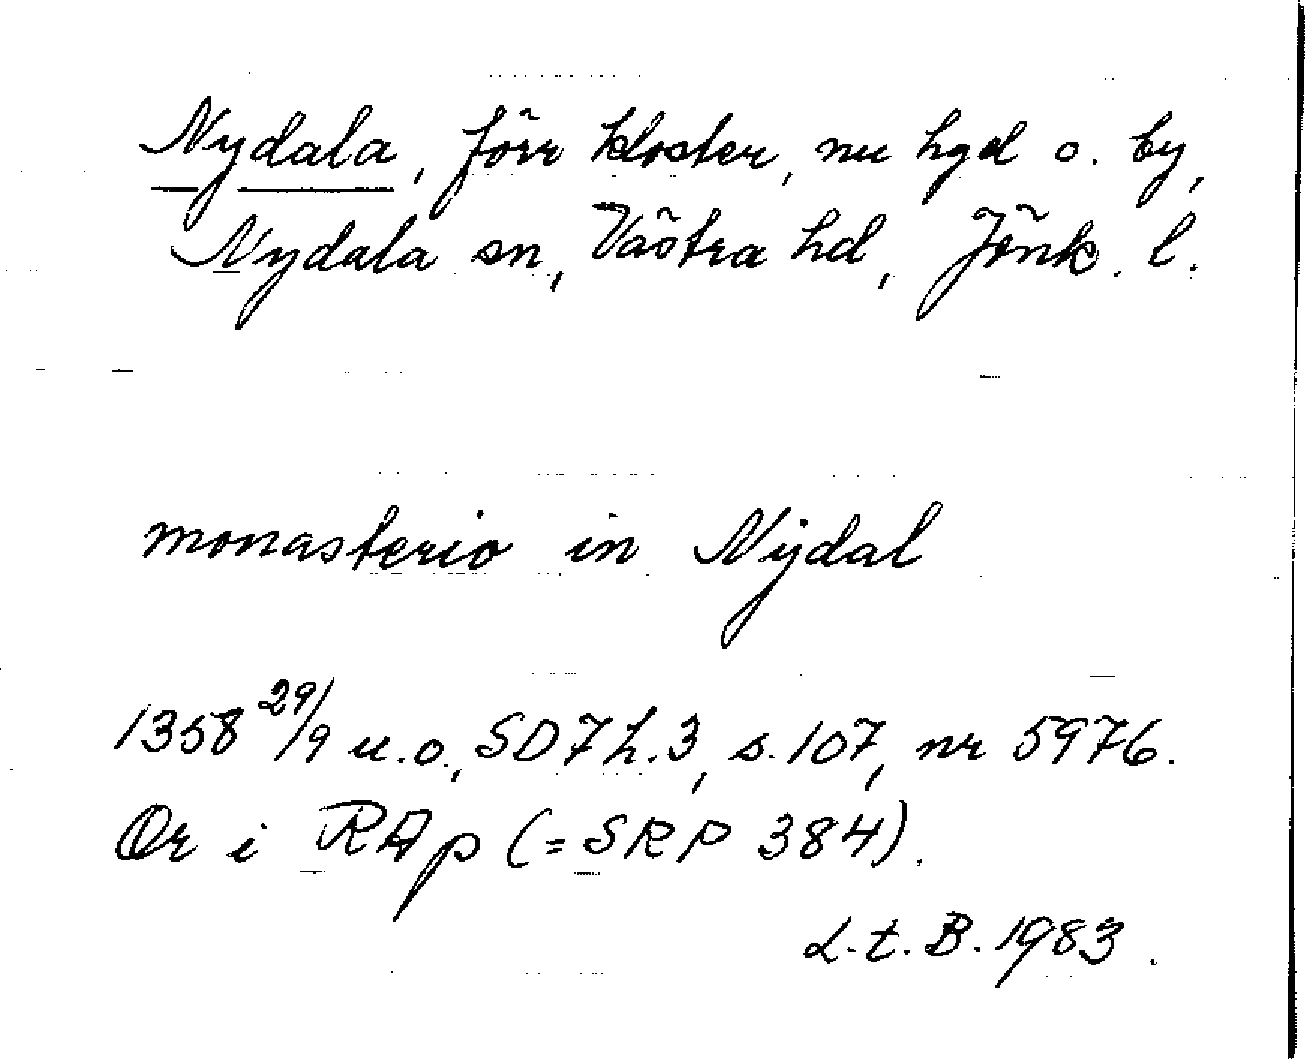 Nydala, förr kloster, nu hgd o. by,
Nydala sn, Västra hd, Jönk. l.
monasterio in Nijdal
1358 29/9 u.o., SD 7 h.3, s.107, nr 5976.
Or i RAp (=SRP 384).
L.t.B. 1983.